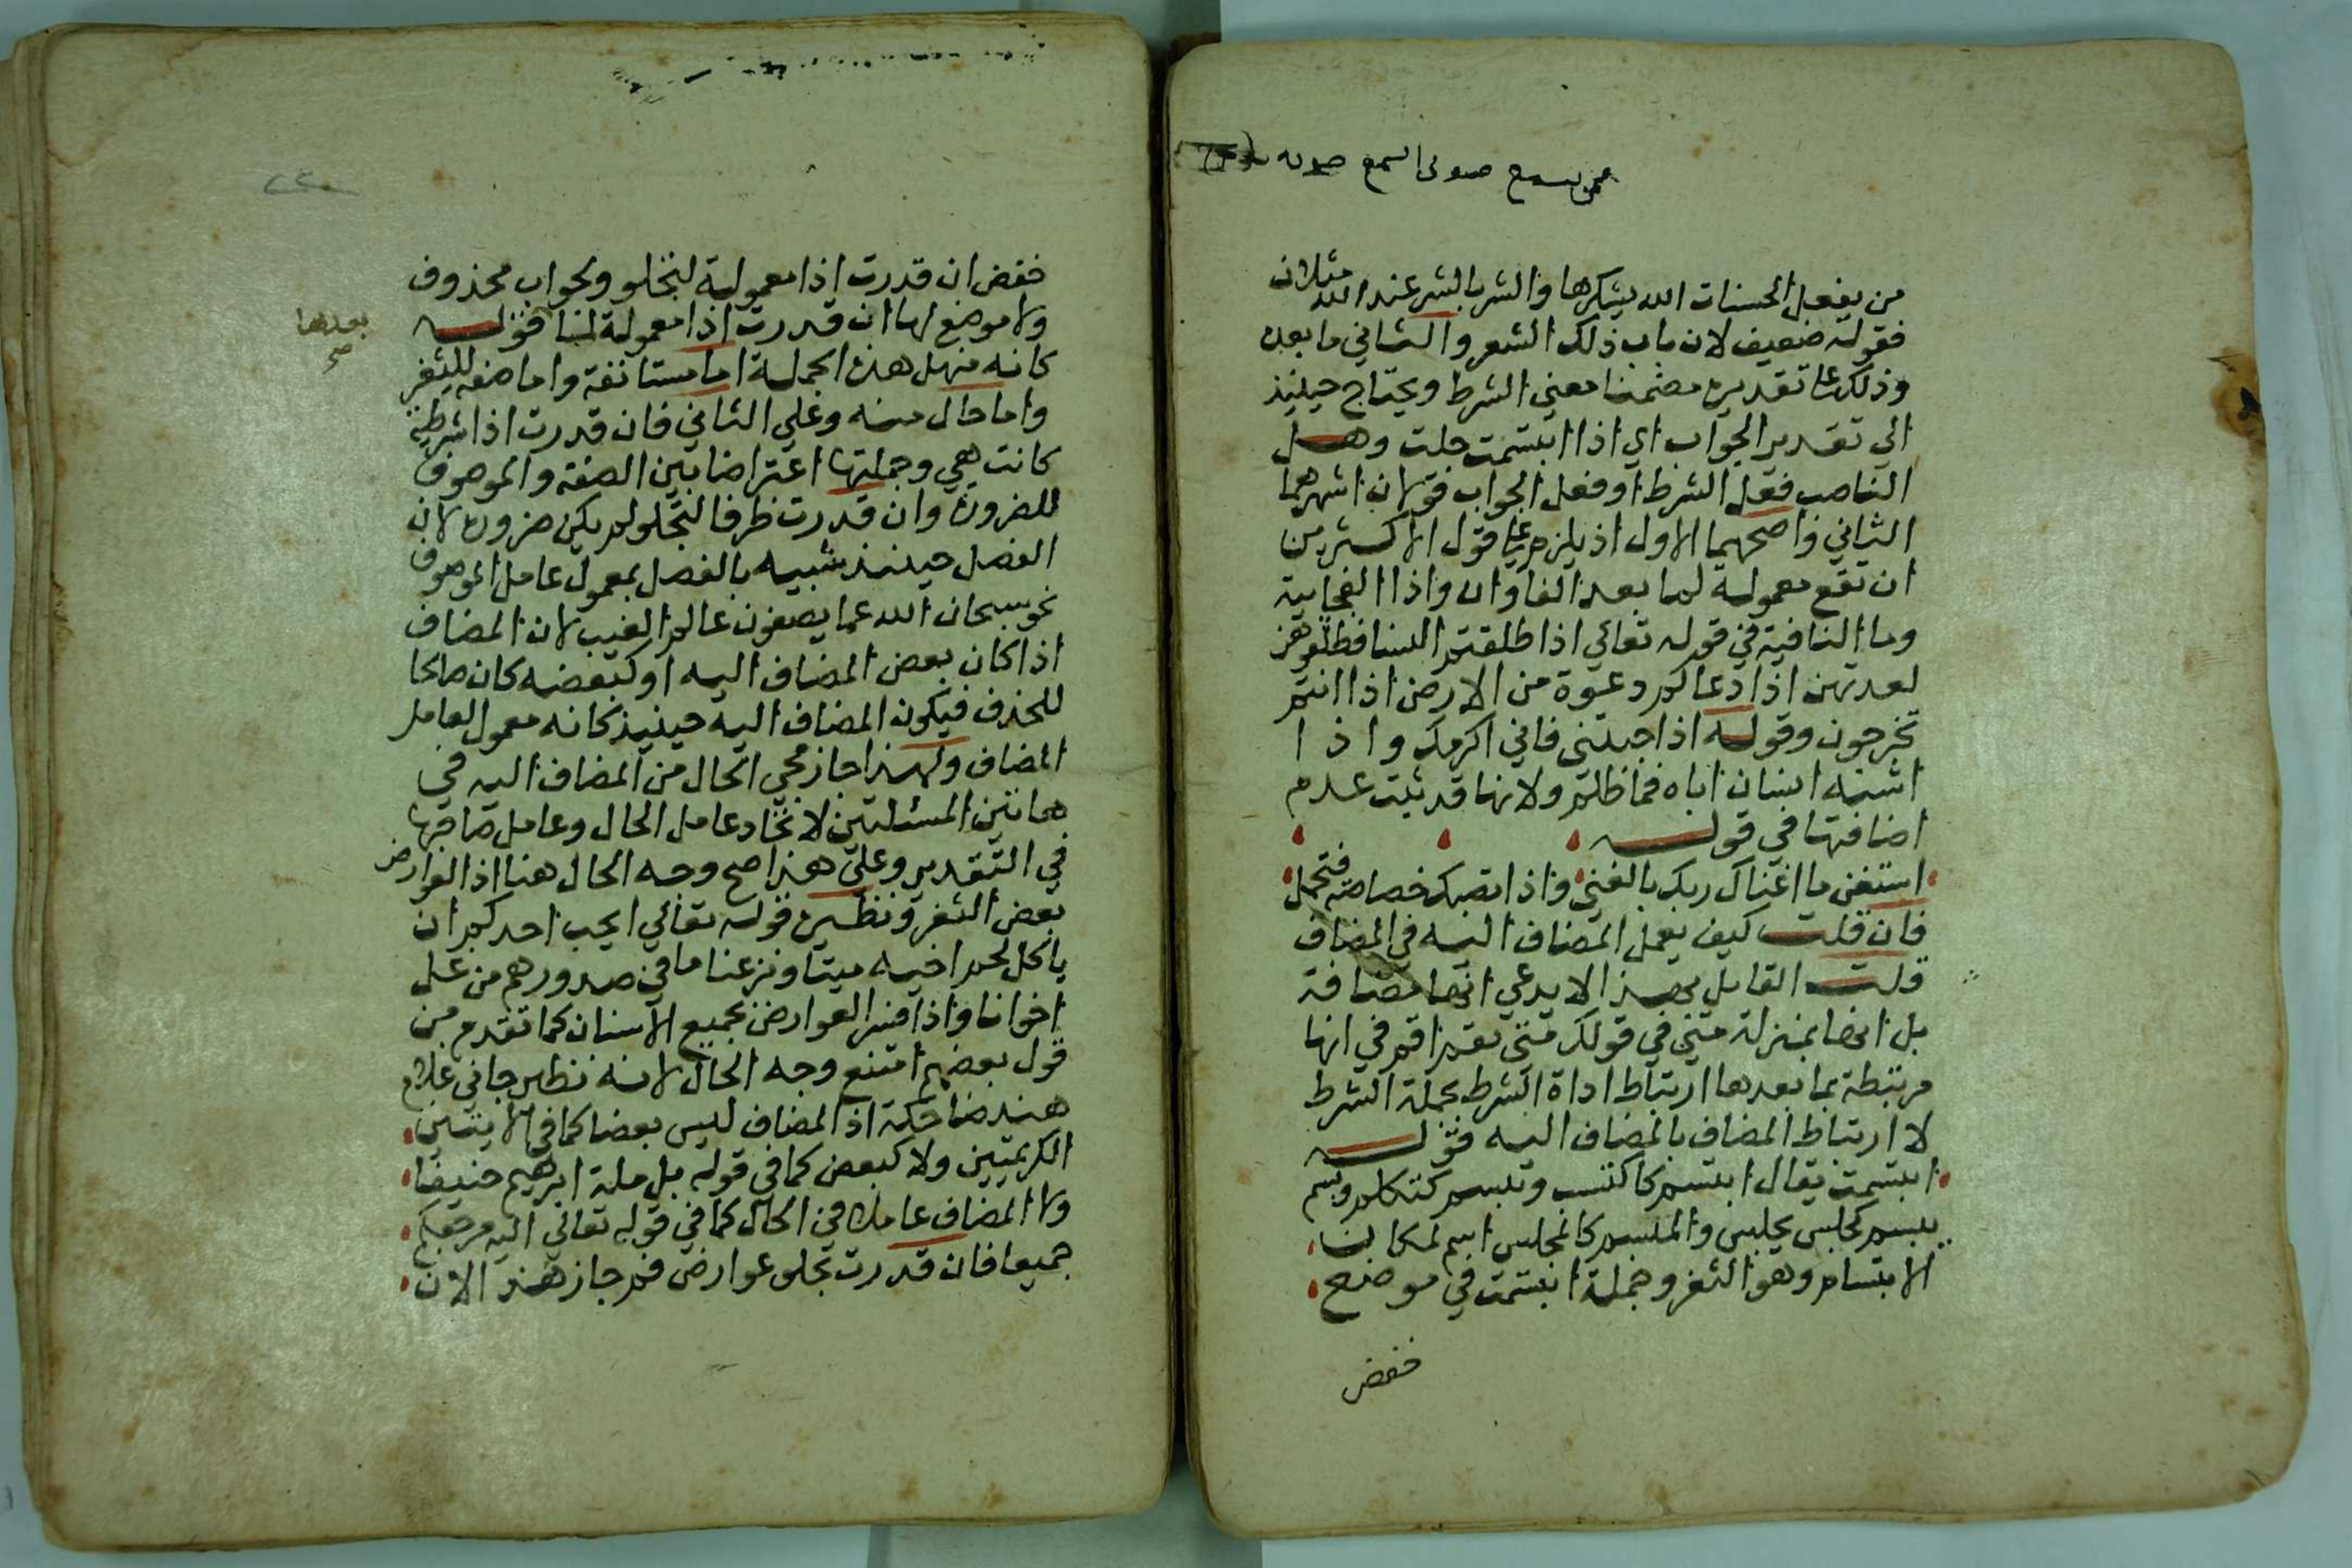 من يفعل الحسنات الله يشكرها والشر بالشر عند الله مثلان
فقوله ضعيف لان باب ذلك الشعر والثاني ما بعده
وذلك على تقديره مضمنا معني الشرط ويحتاج حينيذ
الي تقدير الجواب اي اذا ابتسمت جلت وهل
الناصب فعل الشرط او فعل الجواب قولان اشهرهما
الثاني واصحهما الاول اذ يلزم على قول الاكثرين
ان تقع معمولة لما بعد الفا وان واذا الفجاية
وما النافية في قوله تعالي اذا طلقتم النسا فطلقوهن
لعدتهن اذا دعاكم دعوة من الارض اذا انتم
تخرجون وقوله اذا جيتني فاني اكرمك واذا
اشبه انسان اباه فما ظلم ولانها قد ثبت عدم
اضافتها في قوله
استغن ما اغناك ربك بالغني واذا تصبك خصاصة فتجمل
فان قلت كيف يعمل المضاف اليه في المضاف
قلت القايل بهذا لا يدعي انها مضافة
بل انها بمنزلة متي في قولك متي تقم اقم في انها
مرتبطة بما بعدها ارتباط اداة الشرط بجملة الشرط
لا ارتباط المضاف بالمضاف اليه قوله
ابتسمت يقال ابتسم كاكتسب وتبسم كتكلم وبسم
يبسم كجلس يجلس والمبسم كالمجلس اسم لمكان
الابتسام وهو الثغر وجملة ابتسمت في موضع
خفض
خفض ان قدرت اذا معمولة لتجلو والجواب محذوف
ولا موضع لها ان قدرت اذا معمولة لما قوله
بعدها
صح
كانه منهل هذه الجملة اما مستانفة واما صفة للثغر
واما حال منه وعلي الثاني فان قدرت اذا شرطية
كانت هي وجملتها اعتراضا بين الصفة والموصوف
للضرورة وان قدرت ظرفا لتجلو لم يكن ضرورة لان
الفصل حينيذ شبيه بالفصل بمعمول عامل الموصوف
نحو سبحان الله عما يصفون عالم الغيب لان المضاف
اذا كان بعض المضاف اليه او كبعضه كان صالحا
للحذف فيكون المضاف اليه حينيذ كانه معمول لعامل
المضاف ولهذا جاز مجي الحال من المضاف اليه في
هاتين المسئلتين لاتحاد عامل الحال وعامل صاحبها
في التقدير وعلي هذا صح وجه الحال هنا اذ العوارض
بعض الثغر ونظيره قوله تعالي ايحب احدكم ان
ياكل لحم اخيه ميتا ونزعنا ما في صدورهم من غل
اخوانا واذا فسر العوارض بجميع الاسنان كما تقدم من
قول بعضهم امتنع وجه الحال لانه نظير جاني غلام
هند ضاحكة اذ المضاف ليس بعضا كما في الايتين
الكريمتين ولا كبعض كما في قوله بل ملة ابرهيم حنيفا
ولا المضاف عاملا في الحال كما في قوله تعالي اليه مرجعكم
جميعا فان قدرت تجلو عوارض فم جاز هذا لان